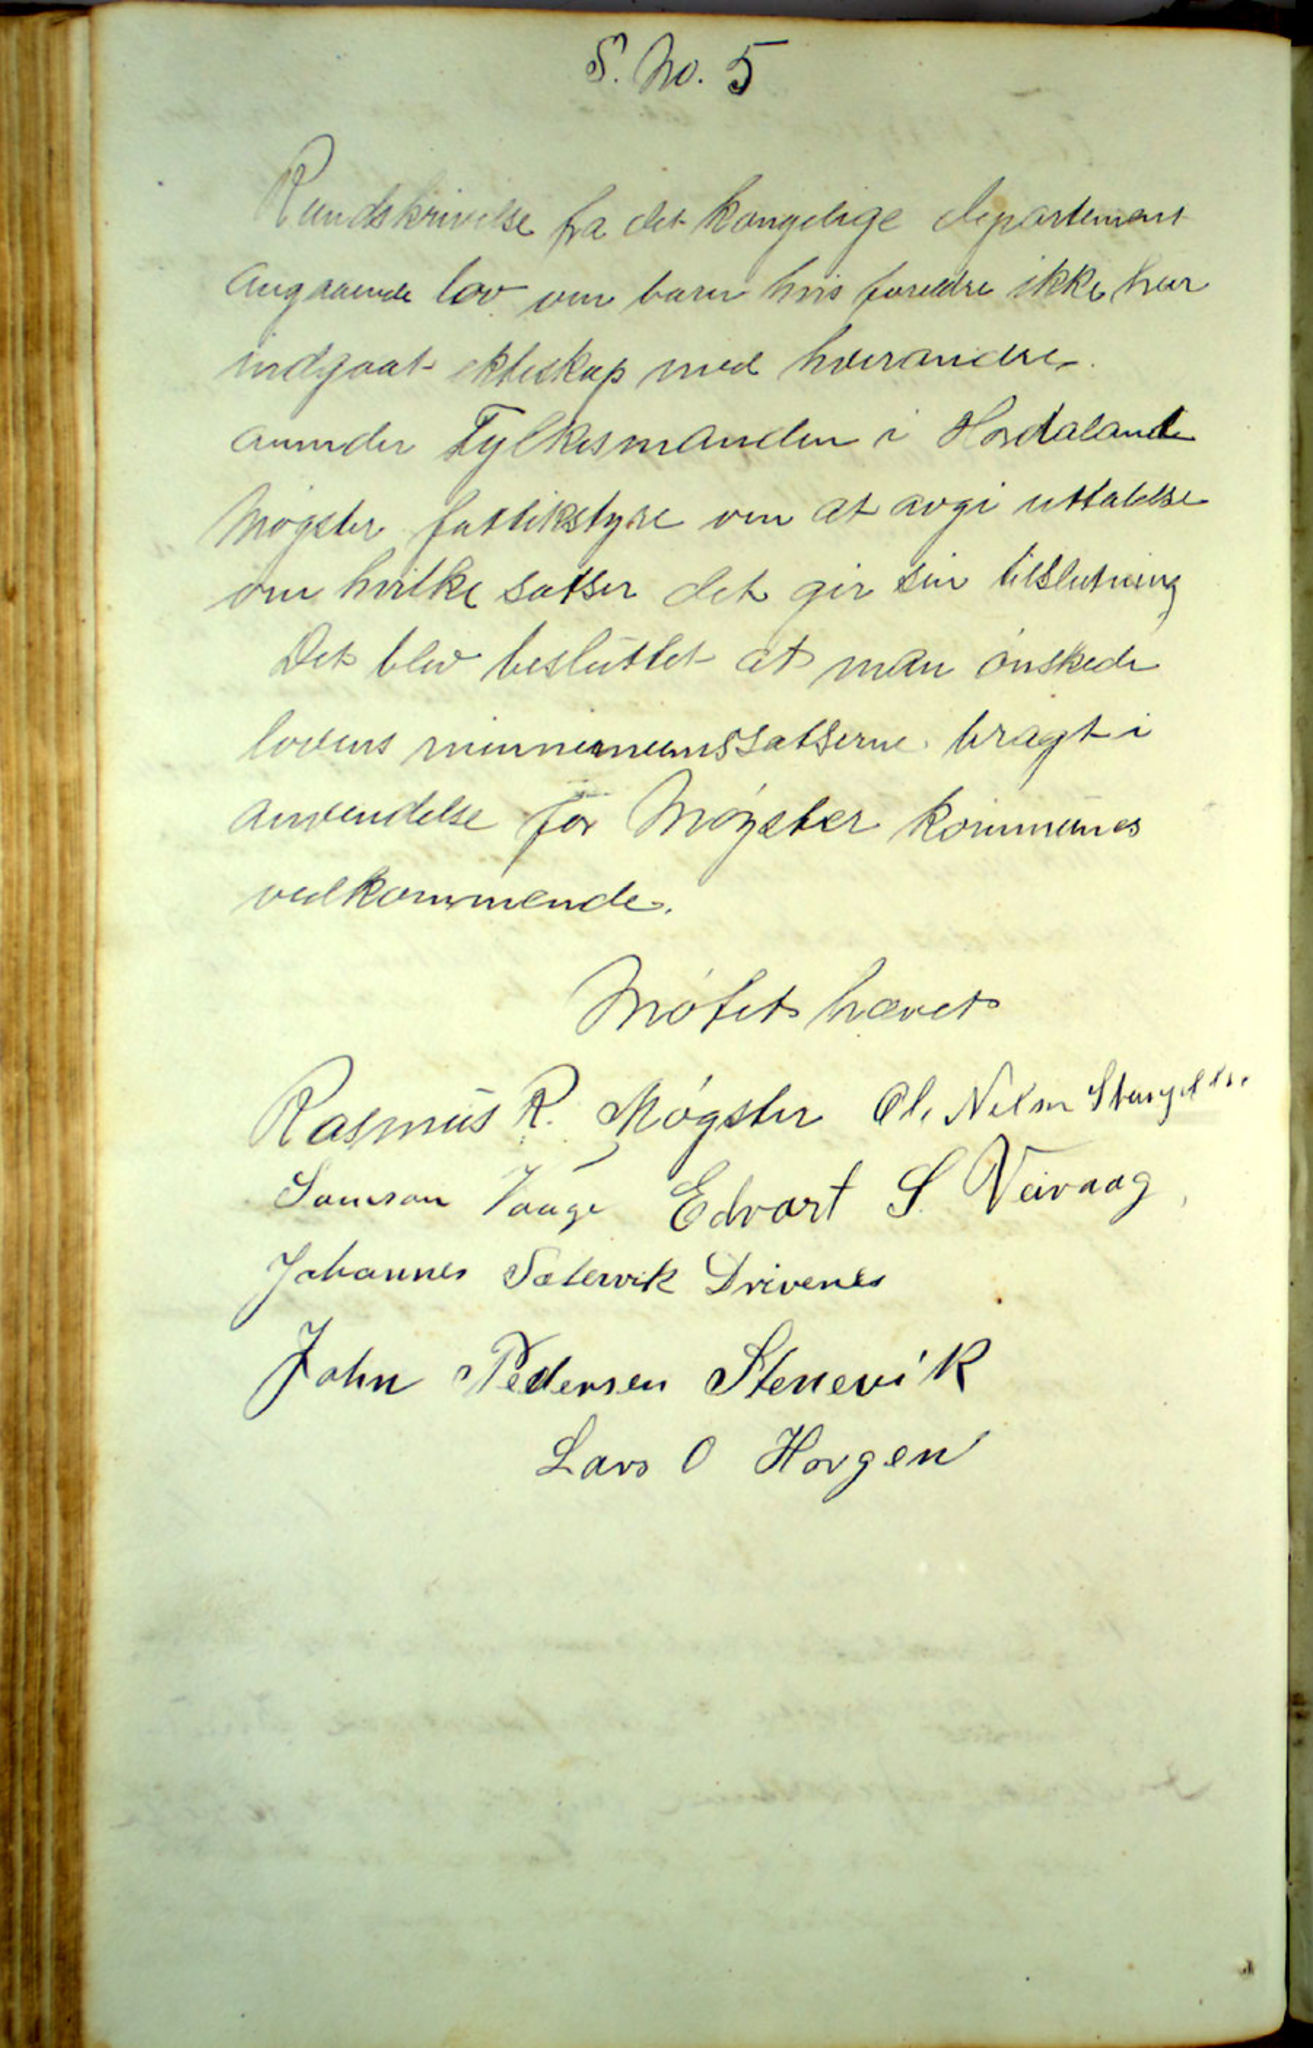 S. No. 5
Rundskrivelse fra det kongelige departement
angaaende lov om barn hvis foreldre ikke har
indgaat ekteskap med hverandre.
anmoder Fylkesmanden i Hordaland
Møgster fattikstyre om at avgi uttalelse
om hvilke satser det gir sin tilslutning
Det blev besluttet at man ønskede
lovens minnimumssatserne bragt i
anvendelse for Møgster kommunes
vedkommende.
Møtet hævet
Rasmus R. Møgster Ol. Nilsen
Samson Vaage Edvart S. Veivaag
Johannes Sætervik Drivenes
John Pedersen Stenevik
Lars O Horgen